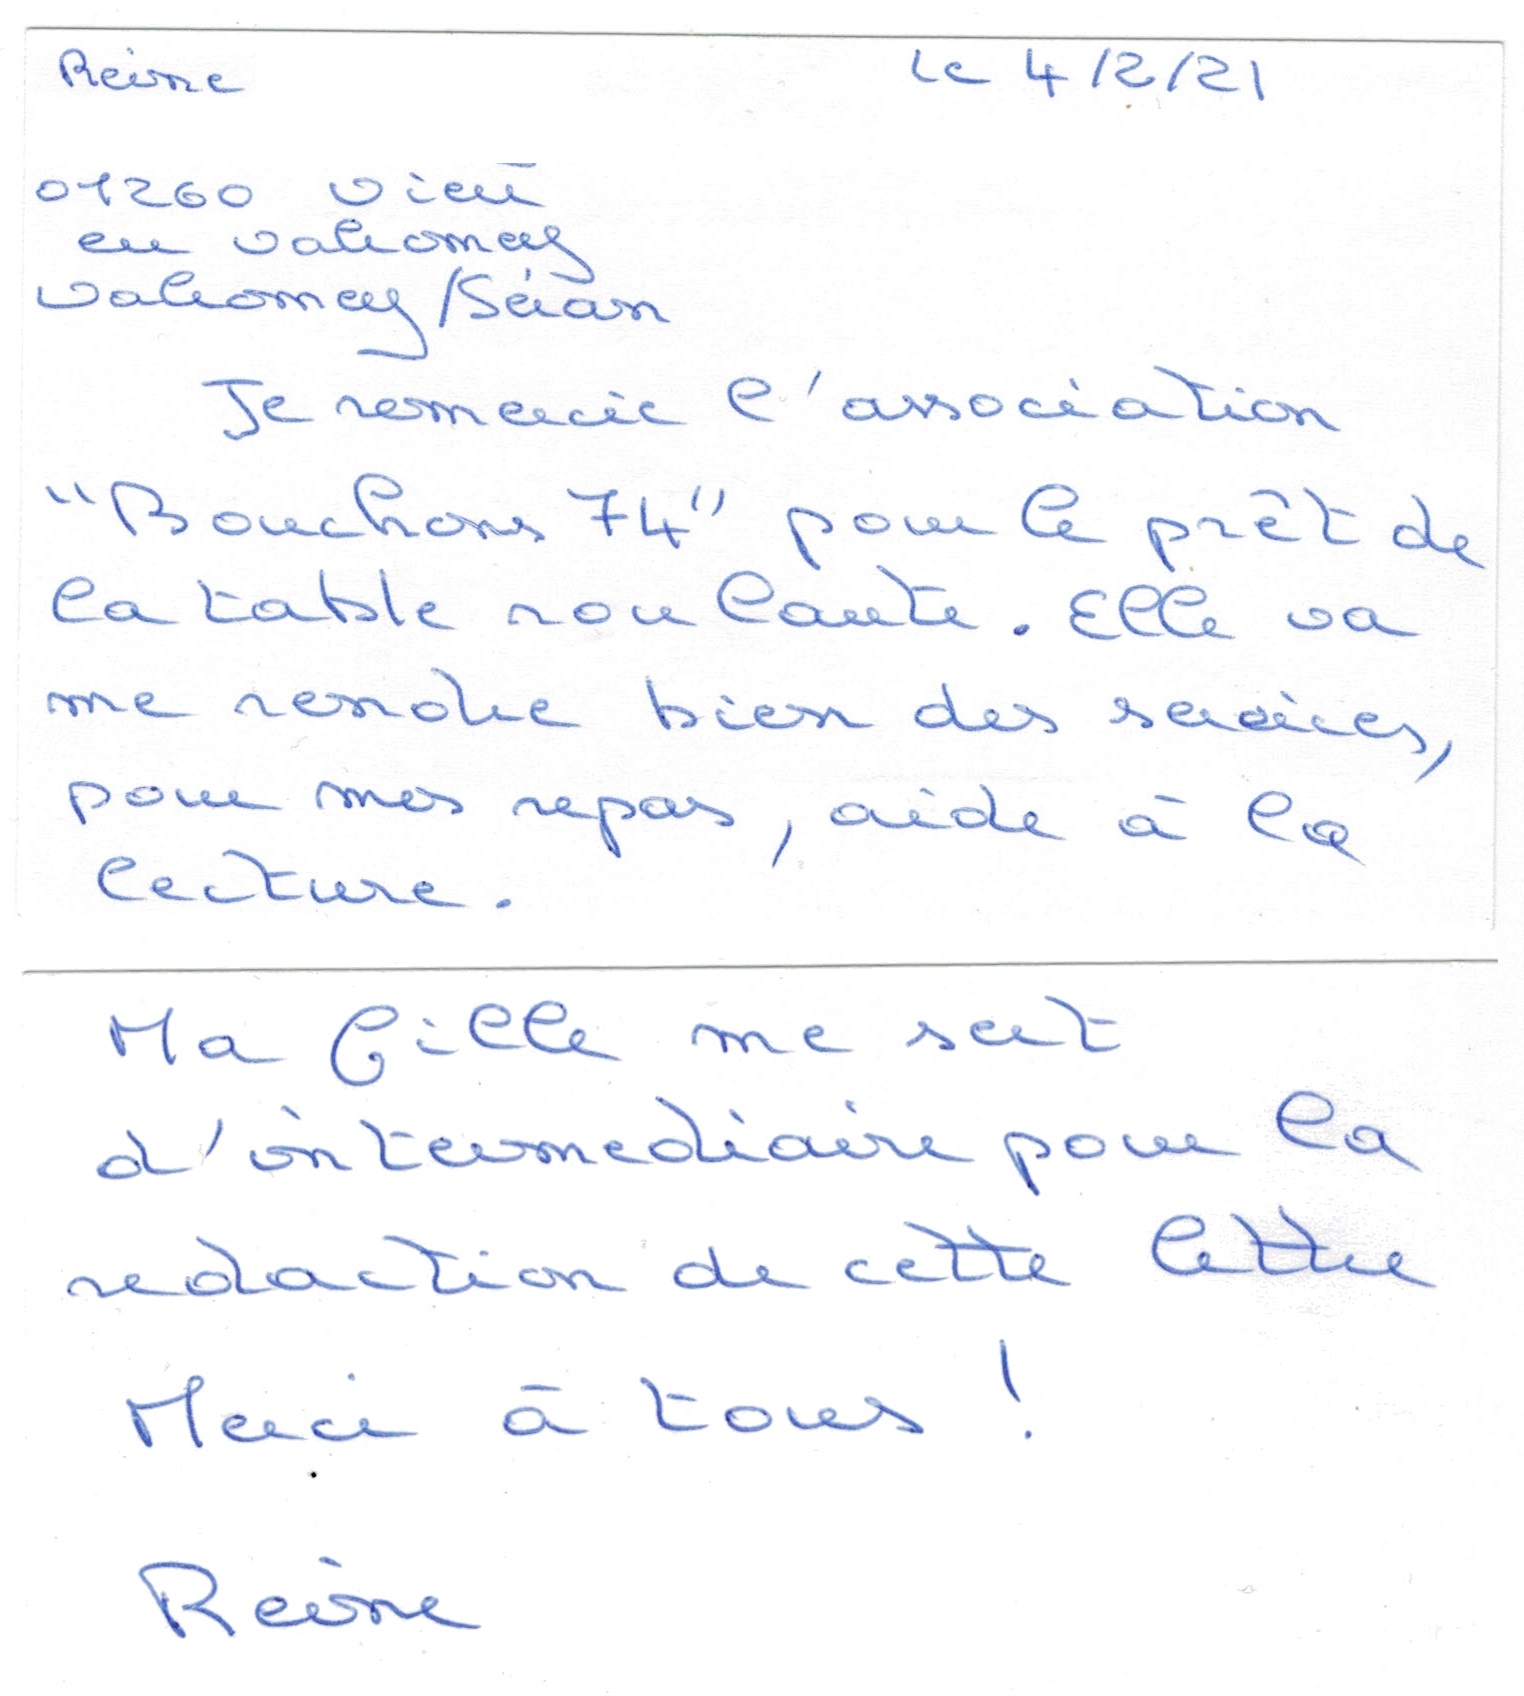 Reine
Le 4/2/21
01260 Vieu
en Valromey
Valromey/Séran
Je remercie l'association
"Bouchons 74" pour le prêt de
la table roulante. Elle va
me rendre bien des services,
pour mes repas, aide à la
lecture.
Ma fille me sert
d'intermediaire pour la
redaction de cette lettre
Merci à tous !
Reine